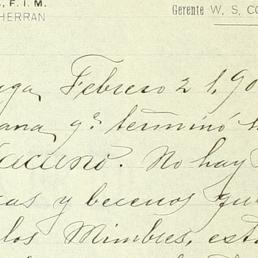 , F. I. M.
HERRAN
Gerente W. S. CO
Febrero 21, 90
ana, q.e terminó
No hay
as y becerros que
los Mimbres, est